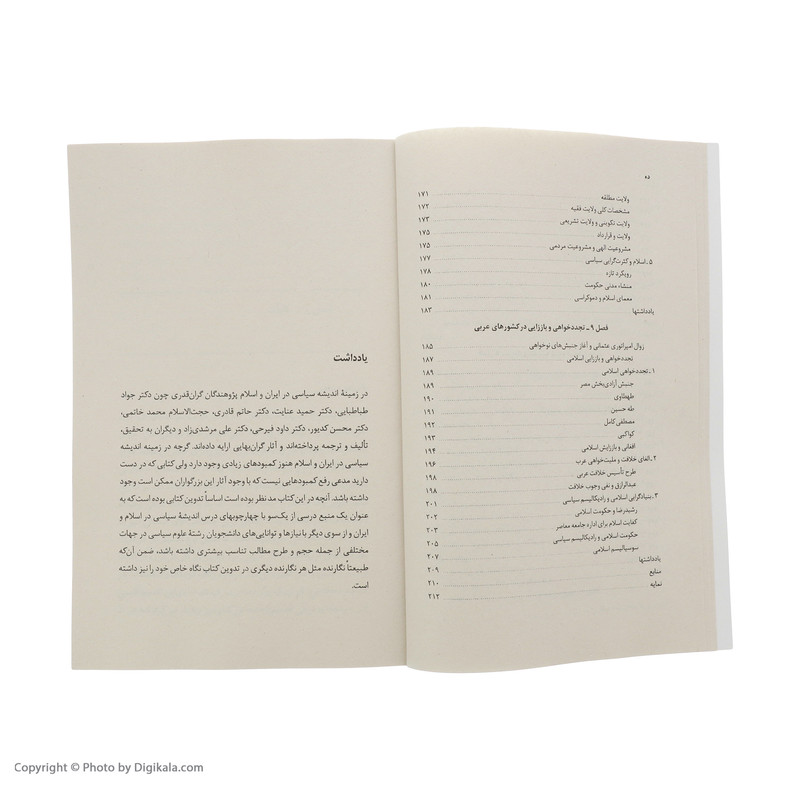 ولایت مطلقه ۱۷۱
مشخصات کلی ولایت فقیه ۱۷۲
ولایت تکوینی و ولایت تشریعی ۱۷۳
ولایت و قرارداد ۱۷۵
مشروعیت الهی و مشروعیت مردمی ۱۷۵
۵ـ اسلام و کثرت‌گرایی سیاسی ۱۷۷
رویکرد تازه ۱۷۸
منشاء مدنی حکومت ۱۸۰
معمای اسلام و دموکراسی ۱۸۱
یادداشتها ۱۸۳
فصل ۹ـ تجددخواهی و باززایی در کشورهای عربی
زوال امپراتوری عثمانی و آغاز جنبش‌های نوخواهی ۱۸۵
تجددخواهی و باززایی اسلامی ۱۸۷
۱ـ تجددخواهی اسلامی ۱۸۹
جنبش آزادی‌بخش مصر ۱۸۹
طهطاوی ۱۹۰
طه حسین ۱۹۱
مصطفی کامل ۱۹۲
کواکبی ۱۹۳
افغانی و باززایش اسلامی ۱۹۴
۲ـ الغای خلافت و ملیت‌خواهی عرب ۱۹۶
طرح تأسیس خلافت عربی ۱۹۸
عبدالرازق و نفی وجوب خلافت ۱۹۸
۳ـ بنیادگرایی اسلامی و رادیکالیسم سیاسی ۲۰۱
رشیدرضا و حکومت اسلامی ۲۰۲
کفایت اسلام برای اداره جامعه معاصر ۲۰۳
حکومت اسلامی و رادیکالیسم سیاسی ۲۰۵
سوسیالیسم اسلامی ۲۰۷
یادداشتها ۲۰۹
منابع ۲۱۰
نمایه ۲۱۲
یادداشت
در زمینهٔ اندیشه سیاسی در ایران و اسلام پژوهندگان گران‌قدری چون دکتر جواد
طباطبایی، دکتر حمید عنایت، دکتر حاتم قادری، حجت‌الاسلام محمد خاتمی،
دکتر محسن کدیور، دکتر داود فیرحی، دکتر علی مرشدی‌زاد و دیگران به تحقیق،
تألیف و ترجمه پرداخته‌اند و آثار گران‌بهایی ارایه داده‌اند. گرچه در زمینه اندیشه
سیاسی در ایران و اسلام هنوز کمبودهای زیادی وجود دارد ولی کتابی که در دست
دارید مدعی رفع کمبودهایی نیست که با وجود آثار این بزرگواران ممکن است وجود
داشته باشد. آنچه در این کتاب مد نظر بوده است اساساً تدوین کتابی بوده است که به
عنوان یک منبع درسی از یک‌سو با چهارچوبهای درس اندیشهٔ سیاسی در اسلام و
ایران و از سوی دیگر با نیازها و توانایی‌های دانشجویان رشتهٔ علوم سیاسی در جهات
مختلفی از جمله حجم و طرح مطالب تناسب بیشتری داشته باشد، ضمن آن‌که
طبیعتاً نگارنده مثل هر نگارنده دیگری در تدوین کتاب نگاه خاص خود را نیز داشته
است.
Copyright © Photo by Digikala.com